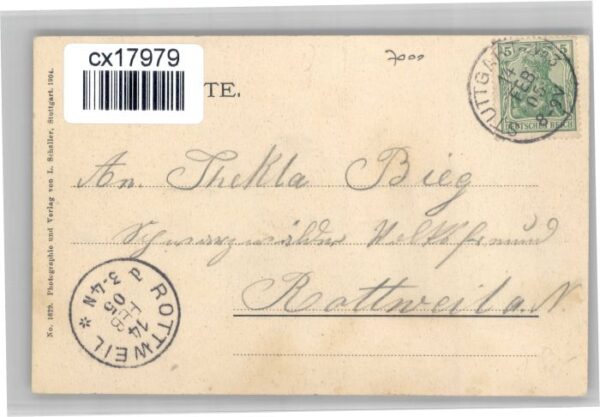 cx17979
7000
TE.
5 5
STUTTGART No. 3
14
FEB
05
8-9V
DEUTSCHES REICH
An. Thekla Bieg
Schwarzwälder Volksfreund
Rottweil a. N.
ROTTWEIL
14
FEB
05
3-4N
No. 1679. Photographie und Verlag von L. Schaller, Stuttgart. 1904.